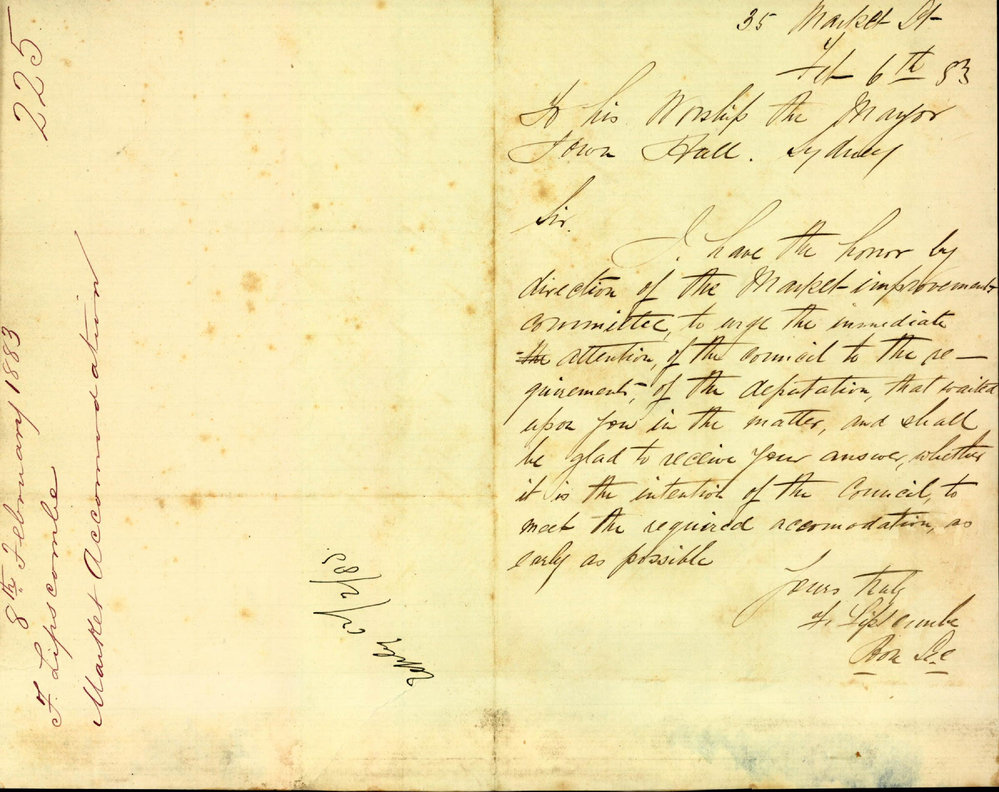 225
8th February 1883
F. Lipscombe
Market Accommodation
35 Market St
Feb 6th 83
To his Worship the Mayor
Town Hall. Sydney
Sir.
I have the honor by
direction of the Market improvement
committee, to urge the immediate
the attention, of the council to the re-
quirements, of the deputation, that waited
upon you in the matter, and shall
be glad to receive your answer, whether
it is the intention of the Council, to
meet the required accomodation, as
early as possible
Yours truly
F Lipscombe
Hon Sec